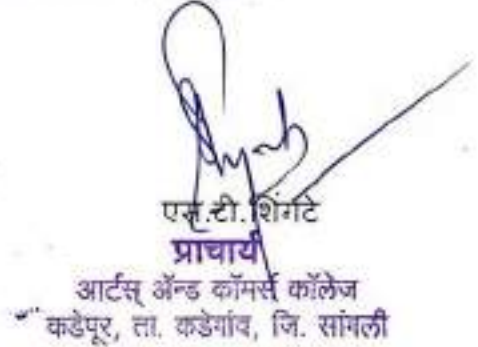 एस.टी.शिंगटे
प्राचार्य
आर्टस् ॲन्ड कॉमर्स कॉलेज
कडेपूर, ता. कडेगांव, जि. सांगली